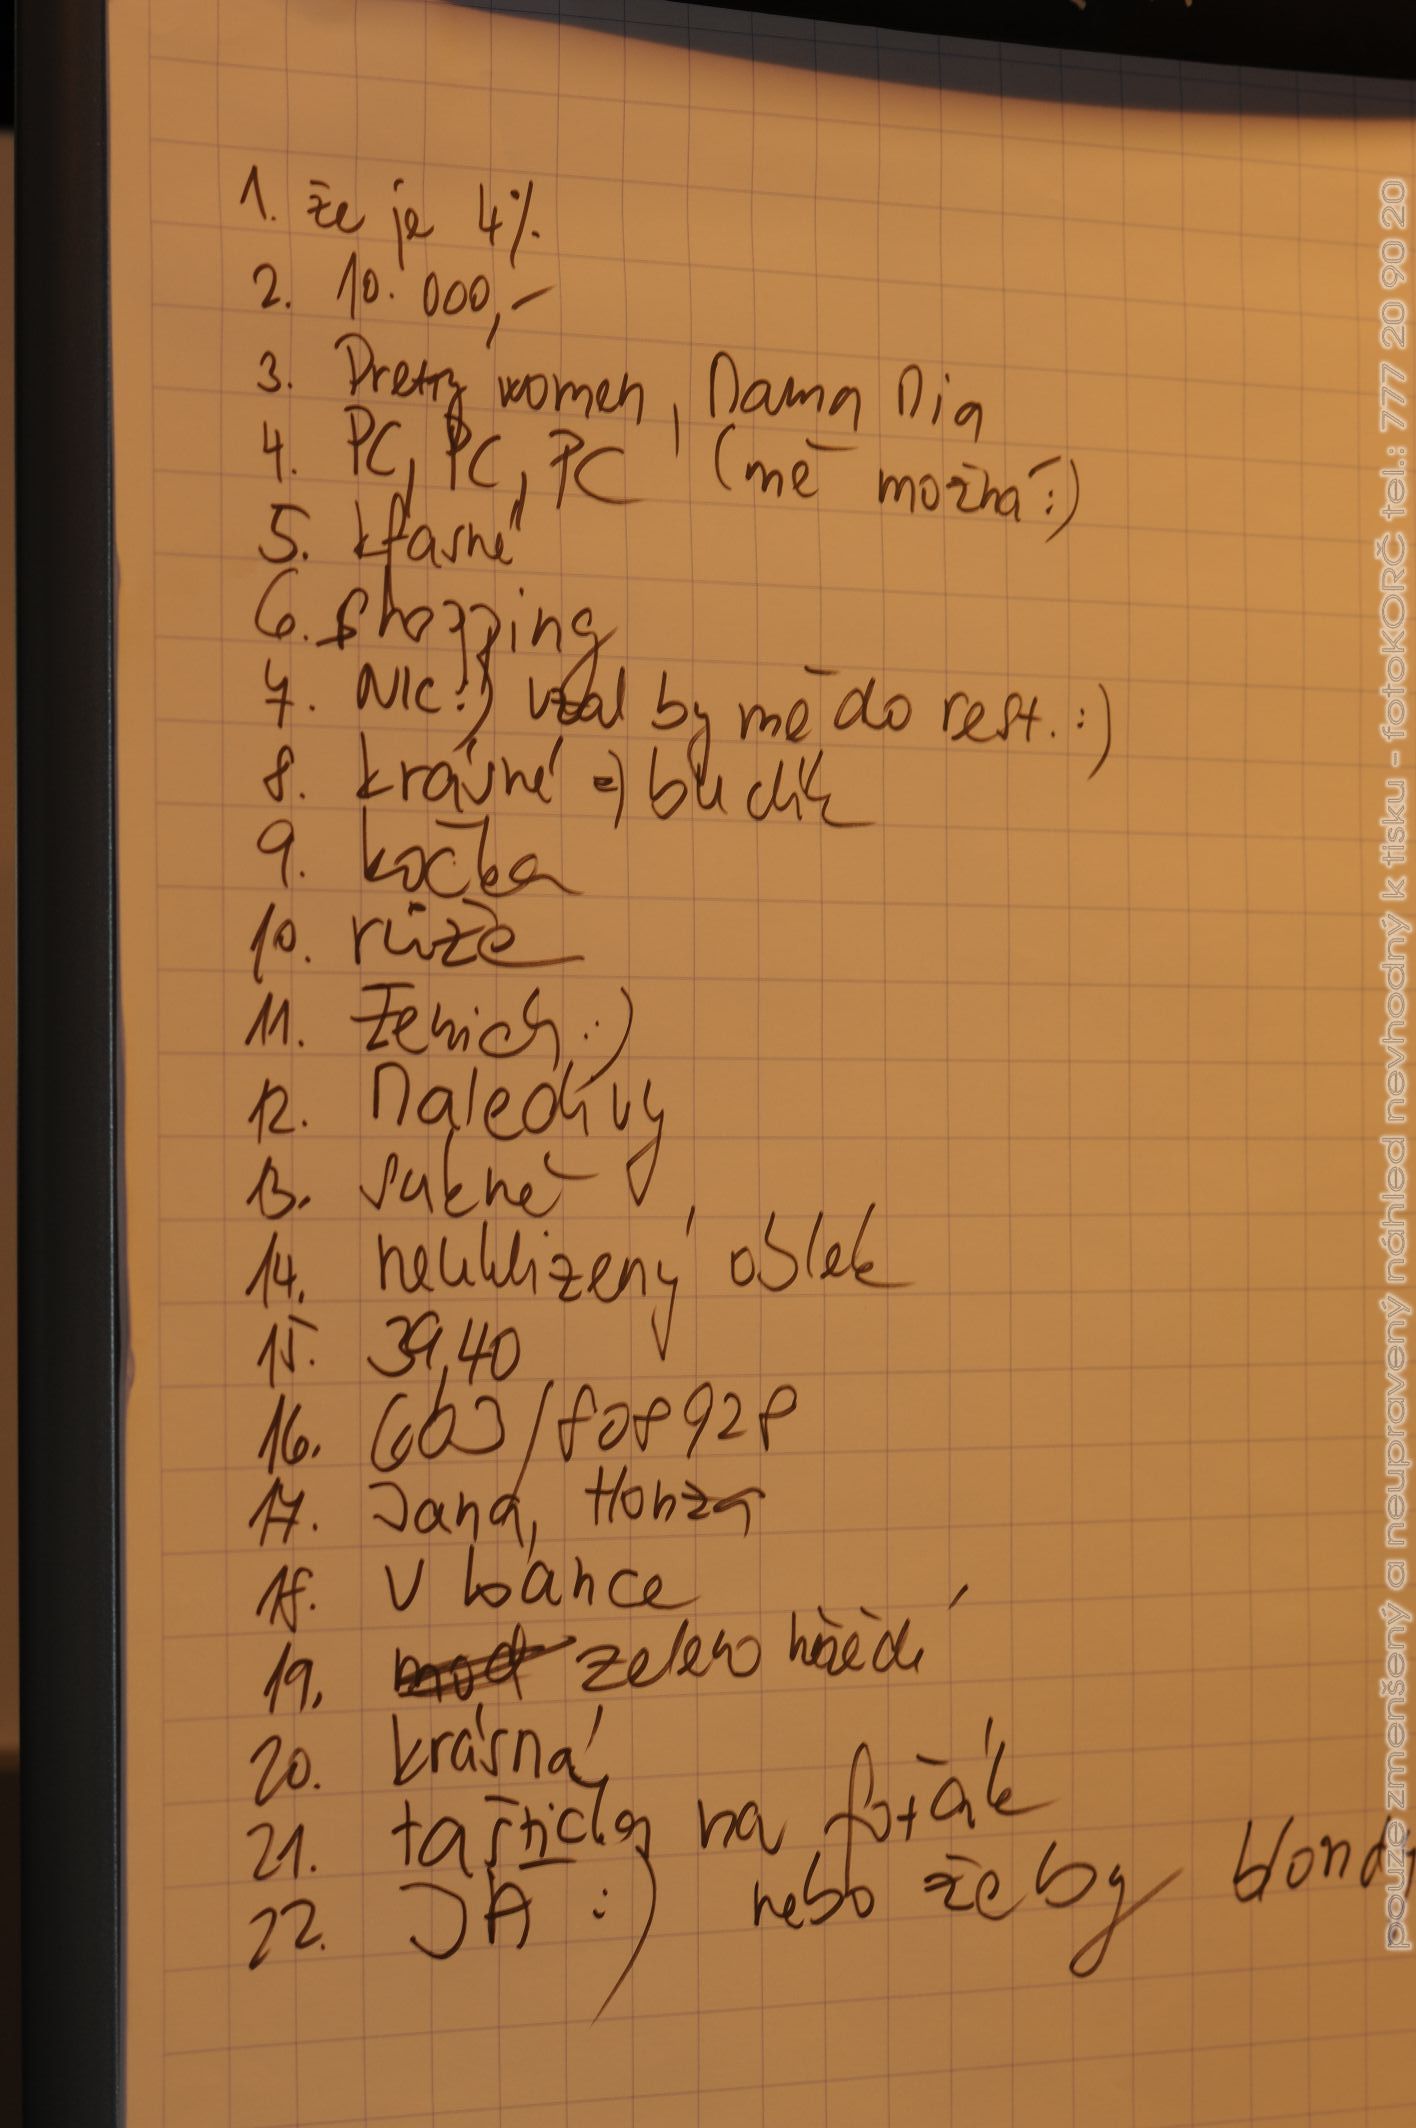 1. že je 4%.
2. 10.000,-
3. Pretty women, Mama Mia
4. PC, PC, PC (mě možná :)
5. krásné
6. shopping
7. NIC :) vzal by mě do rest. :)
8. krásné => budík
9. kočka
10. růže
11. Ženich :)
12. Maledivy
13. sukně
14. neuklizený oblek
15. 39,40
16. 603/808928
17. Jana, Honza
18. v bance
19. mod zelenohnědé
20. krásná
21. taštička na foťák
22. JÁ :) nebo že by blond
pouze zmenšený a neupravený náhled nevhodný k tisku - fotoKORČ tel.: 777 20 90 20